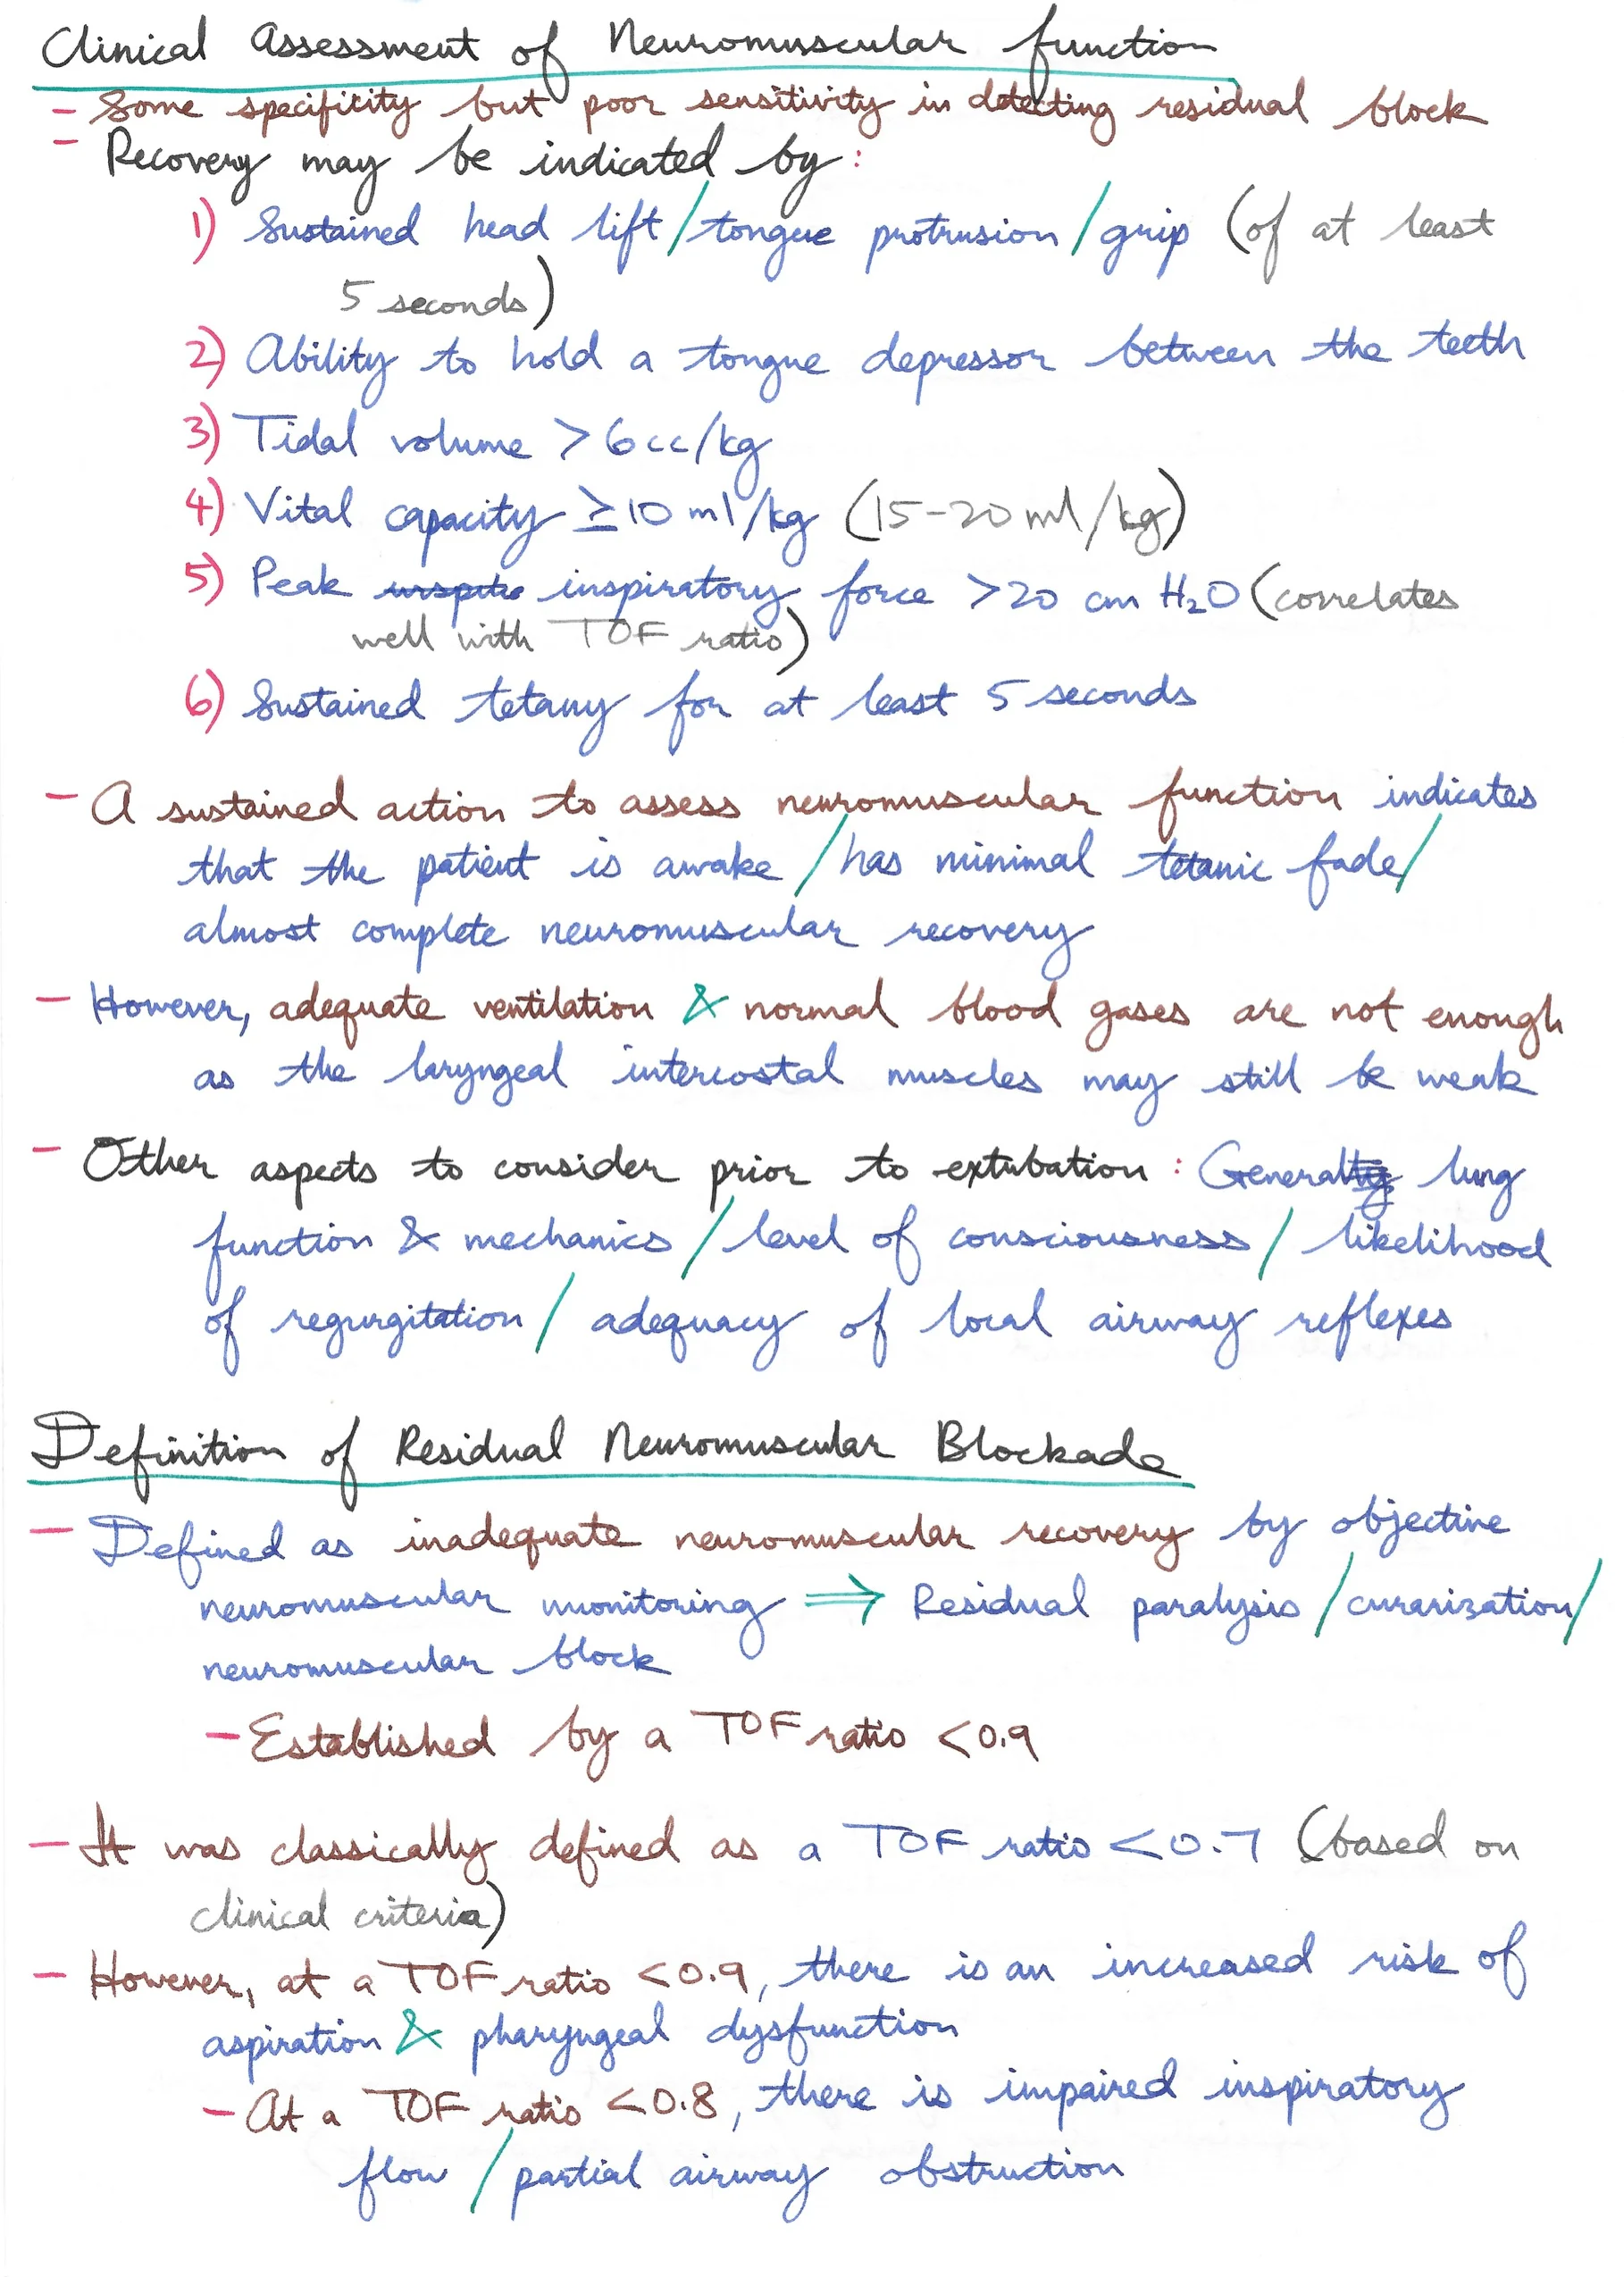 Clinical Assessment of Neuromuscular function
- Some specificity but poor sensitivity in detecting residual block
- Recovery may be indicated by:
1) Sustained head lift/tongue protrusion/grip (of at least
5 seconds)
2) Ability to hold a tongue depressor between the teeth
3) Tidal volume >6cc/kg
4) Vital capacity ≥10 ml/kg (15-20ml/kg)
5) Peak inspiratory force >20 cm H₂O (correlates
well with TOF ratio)
6) Sustained tetany for at least 5 seconds
- A sustained action to assess neuromuscular function indicates
that the patient is awake/has minimal tetanic fade/
almost complete neuromuscular recovery
- However, adequate ventilation & normal blood gases are not enough
as the laryngeal intercostal muscles may still be weak
- Other aspects to consider prior to extubation: General lung
function & mechanics/level of consciousness/likelihood
of regurgitation/adequacy of local airway reflexes
Definition of Residual Neuromuscular Blockade
- Defined as inadequate neuromuscular recovery by objective
neuromuscular monitoring ⇒ Residual paralysis/curarization/
neuromuscular block
- Established by a TOF ratio <0.9
- It was classically defined as a TOF ratio <0.7 (based on
clinical criteria)
- However, at a TOF ratio <0.9, there is an increased risk of
aspiration & pharyngeal dysfunction
- At a TOF ratio <0.8, there is impaired inspiratory
flow/partial airway obstruction